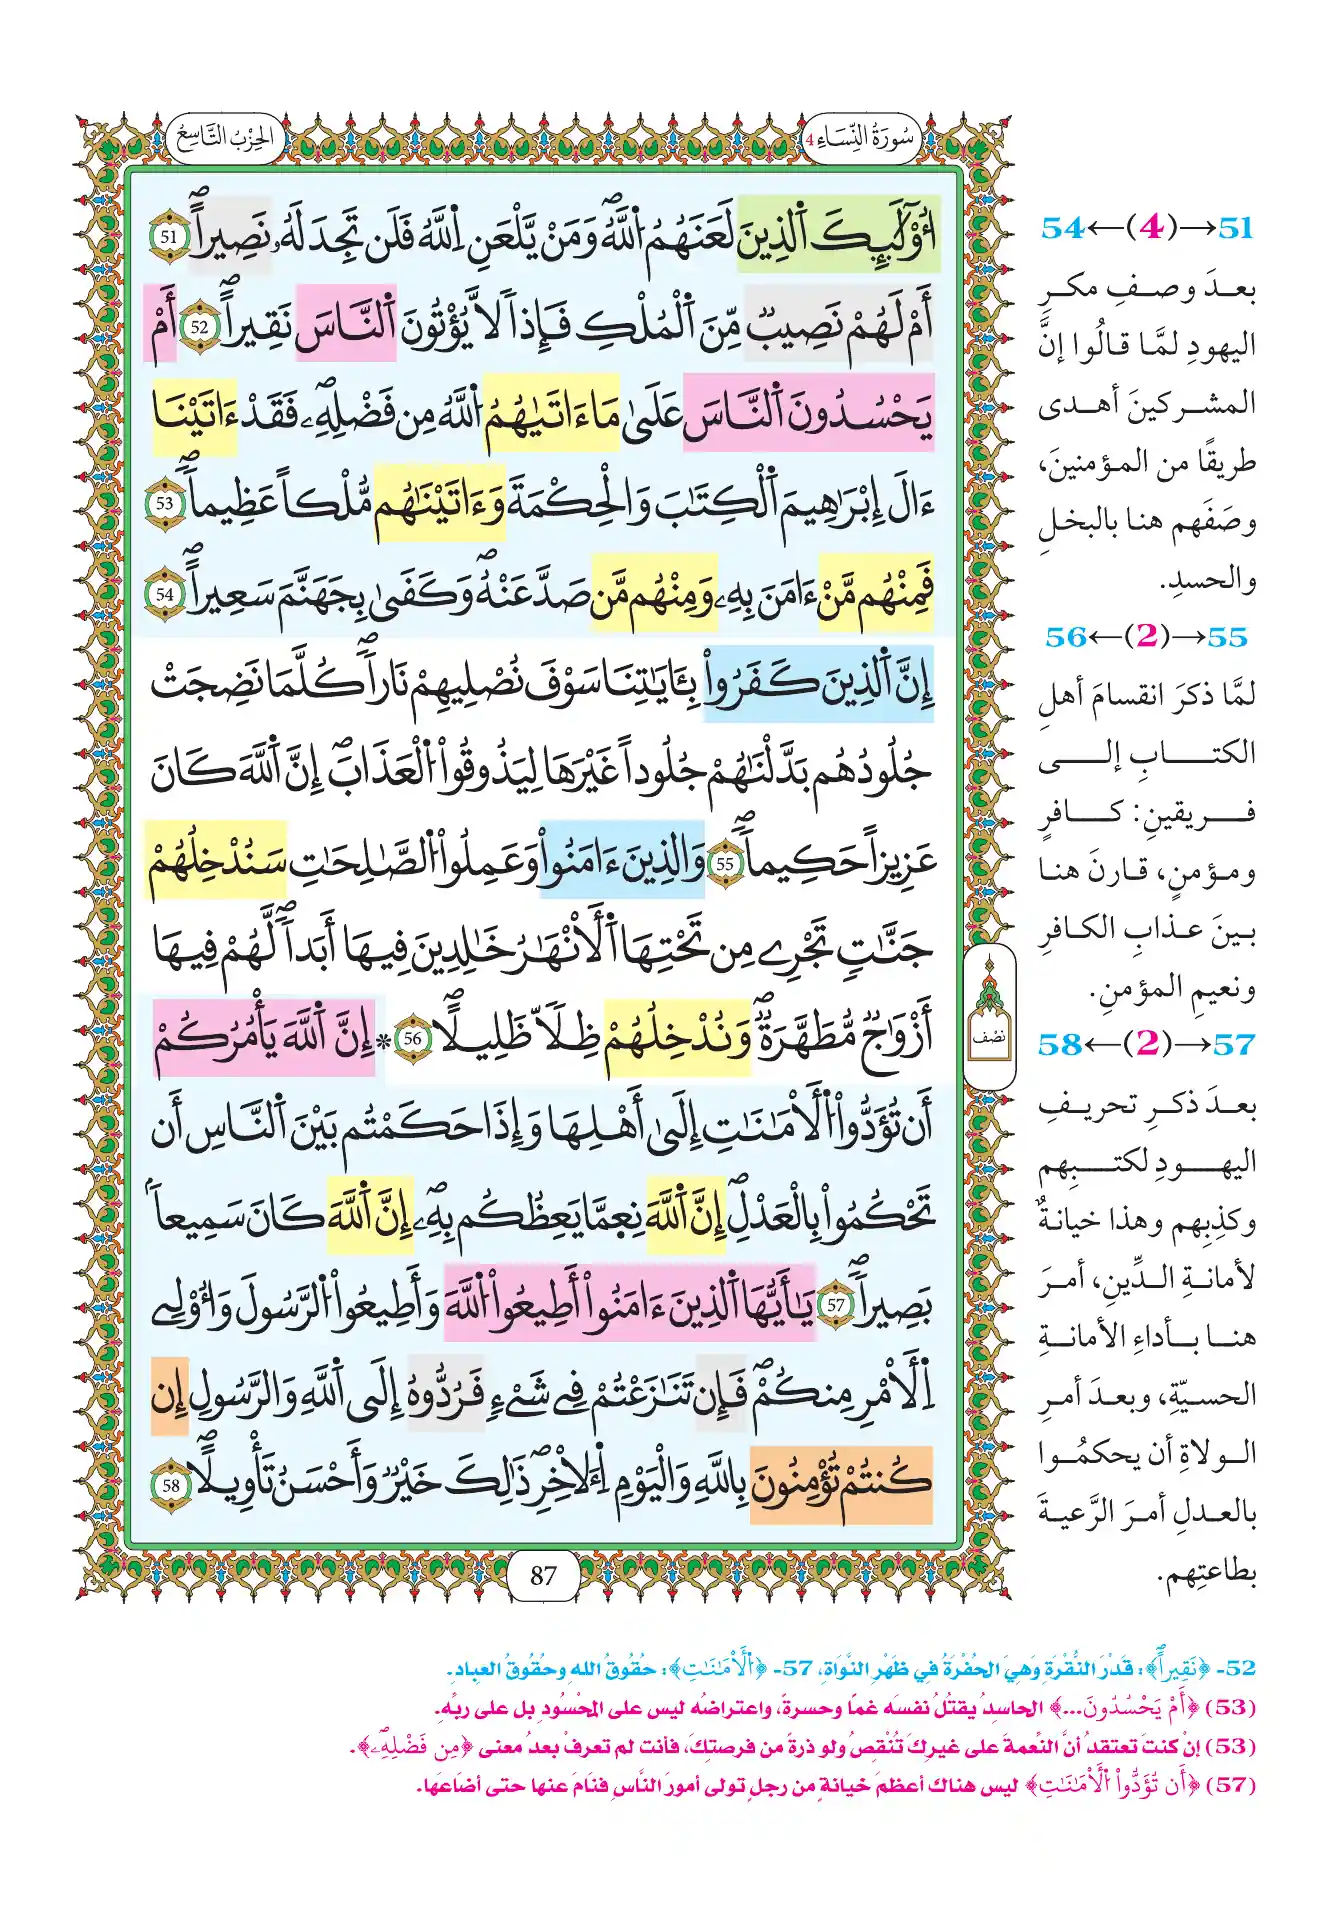 سُورَةُ النِّسَاءِ 4
الحِزْبُ التَّاسِعُ
أُوْلَٰٓئِكَ اَ۬لذِينَ لَعَنَهُمُ اُ۬للَّهُۖ وَمَنْ يَّلْعَنِ اِ۬للَّهُ فَلَن تَجِدَ لَهُۥ نَصِيراًۖ 51
أَمْ لَهُمْ نَصِيبٞ مِّنَ اَ۬لْمُلْكِ فَإِذاٗ لَّا يُؤْتُونَ اَ۬لنَّاسَ نَقِيراًۖ 52 أَمْ
يَحْسُدُونَ اَ۬لنَّاسَ عَلَىٰ مَا ءَاتَىٰهُمُ اُ۬للَّهُ مِن فَضْلِهِۦۖ فَقَدْ ءَاتَيْنَا
ءَالَ إِبْرَاهِيمَ اَ۬لْكِتَٰبَ وَالْحِكْمَةَ وَءَاتَيْنَٰهُم مُّلْكاً عَظِيماًۖ 53
فَمِنْهُم مَّنْ ءَامَنَ بِهِۦ وَمِنْهُم مَّن صَدَّ عَنْهُۖ وَكَفَىٰ بِجَهَنَّمَ سَعِيراًۖ 54
إِنَّ اَ۬لذِينَ كَفَرُواْ بِـَٔايَٰتِنَا سَوْفَ نُصْلِيهِمْ نَاراٗۖ كُلَّمَا نَضِجَتْ
جُلُودُهُم بَدَّلْنَٰهُمْ جُلُوداً غَيْرَهَا لِيَذُوقُواْ اُ۬لْعَذَابَۖ إِنَّ اَ۬للَّهَ كَانَ
عَزِيزاً حَكِيماٗۖ 55 وَالذِينَ ءَامَنُواْ وَعَمِلُواْ اُ۬لصَّٰلِحَٰتِ سَنُدْخِلُهُمْ
جَنَّٰتٖ تَجْرِے مِن تَحْتِهَا اَ۬لْأَنْهَٰرُ خَٰلِدِينَ فِيهَا أَبَداٗۖ لَّهُمْ فِيهَا
أَزْوَٰجٞ مُّطَهَّرَةٞۖ وَنُدْخِلُهُمْ ظِلّاٗ ظَلِيلاًۖ 56 * إِنَّ اَ۬للَّهَ يَأْمُرُكُمْ
أَن تُؤَدُّواْ اُ۬لْأَمَٰنَٰتِ إِلَىٰ أَهْلِهَا وَإِذَا حَكَمْتُم بَيْنَ اَ۬لنَّاسِ أَن
تَحْكُمُواْ بِالْعَدْلِۖ إِنَّ اَ۬للَّهَ نِعِمَّا يَعِظُكُم بِهِۦۖ إِنَّ اَ۬للَّهَ كَانَ سَمِيعاَۢ
بَصِيراٗۖ 57 يَٰأَيُّهَا اَ۬لذِينَ ءَامَنُواْ أَطِيعُواْ اُ۬للَّهَ وَأَطِيعُواْ اُ۬لرَّسُولَ وَأُوْلِے
اِ۬لْأَمْرِ مِنكُمْۖ فَإِن تَنَٰزَعْتُمْ فِے شَےْءٖ فَرُدُّوهُ إِلَى اَ۬للَّهِ وَالرَّسُولِ إِن
كُنتُمْ تُؤْمِنُونَ بِاللَّهِ وَالْيَوْمِ اِ۬لْأٓخِرِۖ ذَٰلِكَ خَيْرٞ وَأَحْسَنُ تَأْوِيلاًۖ 58
نصف
87
51→(4)←54
بعدَ وصفِ مكرِ
اليهودِ لمَّا قالُوا إنَّ
المشركينَ أهدى
طريقًا من المؤمنينَ،
وصَفَهم هنا بالبخلِ
والحسدِ.
55→(2)←56
لمَّا ذكرَ انقسامَ أهلِ
الكتابِ إلى
فريقينِ: كافرٍ
ومؤمنٍ، قارنَ هنا
بينَ عذابِ الكافرِ
ونعيمِ المؤمنِ.
57→(2)←58
بعدَ ذكرِ تحريفِ
اليهودِ لكتبِهم
وكذبِهم وهذا خيانةٌ
لأمانةِ الدِّينِ، أمرَ
هنا بأداءِ الأمانةِ
الحسيّةِ، وبعدَ أمرِ
الولاةِ أن يحكمُوا
بالعدلِ أمرَ الرَّعيةَ
بطاعتِهم.
52- ﴿نَقِيراًۖ﴾: قَدْرَ النُّقْرَةِ وَهِيَ الحُفْرَةُ فِي ظَهْرِ النَّوَاةِ، 57- ﴿اُ۬لْأَمَٰنَٰتِ﴾: حُقُوقُ اللهِ وحُقُوقُ العِبادِ.
(53) ﴿أَمْ يَحْسُدُونَ...﴾ الحاسدُ يقتُلُ نفسَه غمًا وحسرةً، واعتراضُه ليس على المحْسُودِ بل على ربِّه.
(53) إنْ كنتَ تعتقدُ أنَّ النِّعمةَ على غيرِكَ تُنْقِصُ ولو ذرةً من فرصتِكَ، فأنت لم تعرفْ بعدُ معنى ﴿مِن فَضْلِهِۦۖ﴾.
(57) ﴿أَن تُؤَدُّواْ اُ۬لْأَمَٰنَٰتِ﴾ ليس هناك أعظمَ خيانةٍ من رجلٍ تولى أمورَ النَّاسِ فنَامَ عنها حتى أضَاعَها.